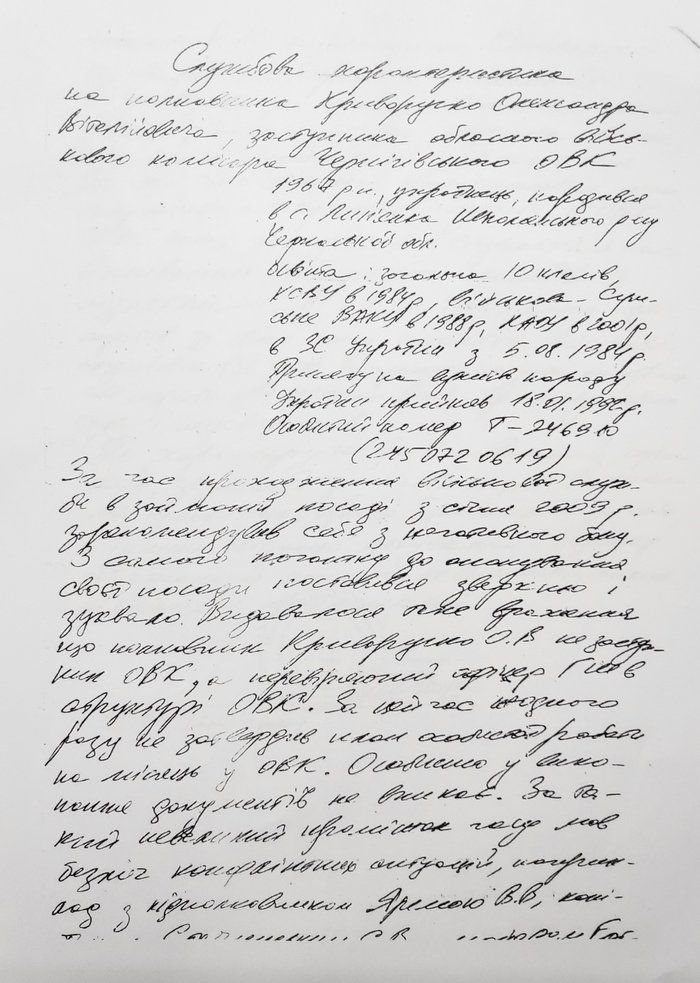 Службова характеристика
на полковника Криворучко Олександра
Віталійовича, заступника обласного війсь-
кового комісара Чернігівського ОВК
1967 р.н., українець, народився
в с. Липенка р-ну
обл.
освіта: загальна 10 класів,
КСВУ в 1984р, військова - Сум-
ське ВАКУ в 1988р, в 2001р,
в ЗС України з 5.08.1984р.
Присягу на вірність народу
України прийняв 18.01.1992р.
Особистий номер Г-246910
(2450720619)
За час проходження військової служ-
би в займаній посаді з січня 2009 р.
зарекомендував себе з негативного боку.
З самого початку до виконування
своєї посади поставився зверхньо і
зухвало. Видавалося таке враження
що полковник Криворучко О.В не заступ-
ник ОВК, а перевіряючий офіцер ГШ в
структурі ОВК. За цей час жодного
разу не затвердив план особистої роботи
на місяць у ОВК. Особисто у вико-
нання документів не вникає. За та-
кий невеликий проміжок часу мав
безліч конфліктних ситуацій, наприк-
лад з підполковником Яремою В.В, капі-